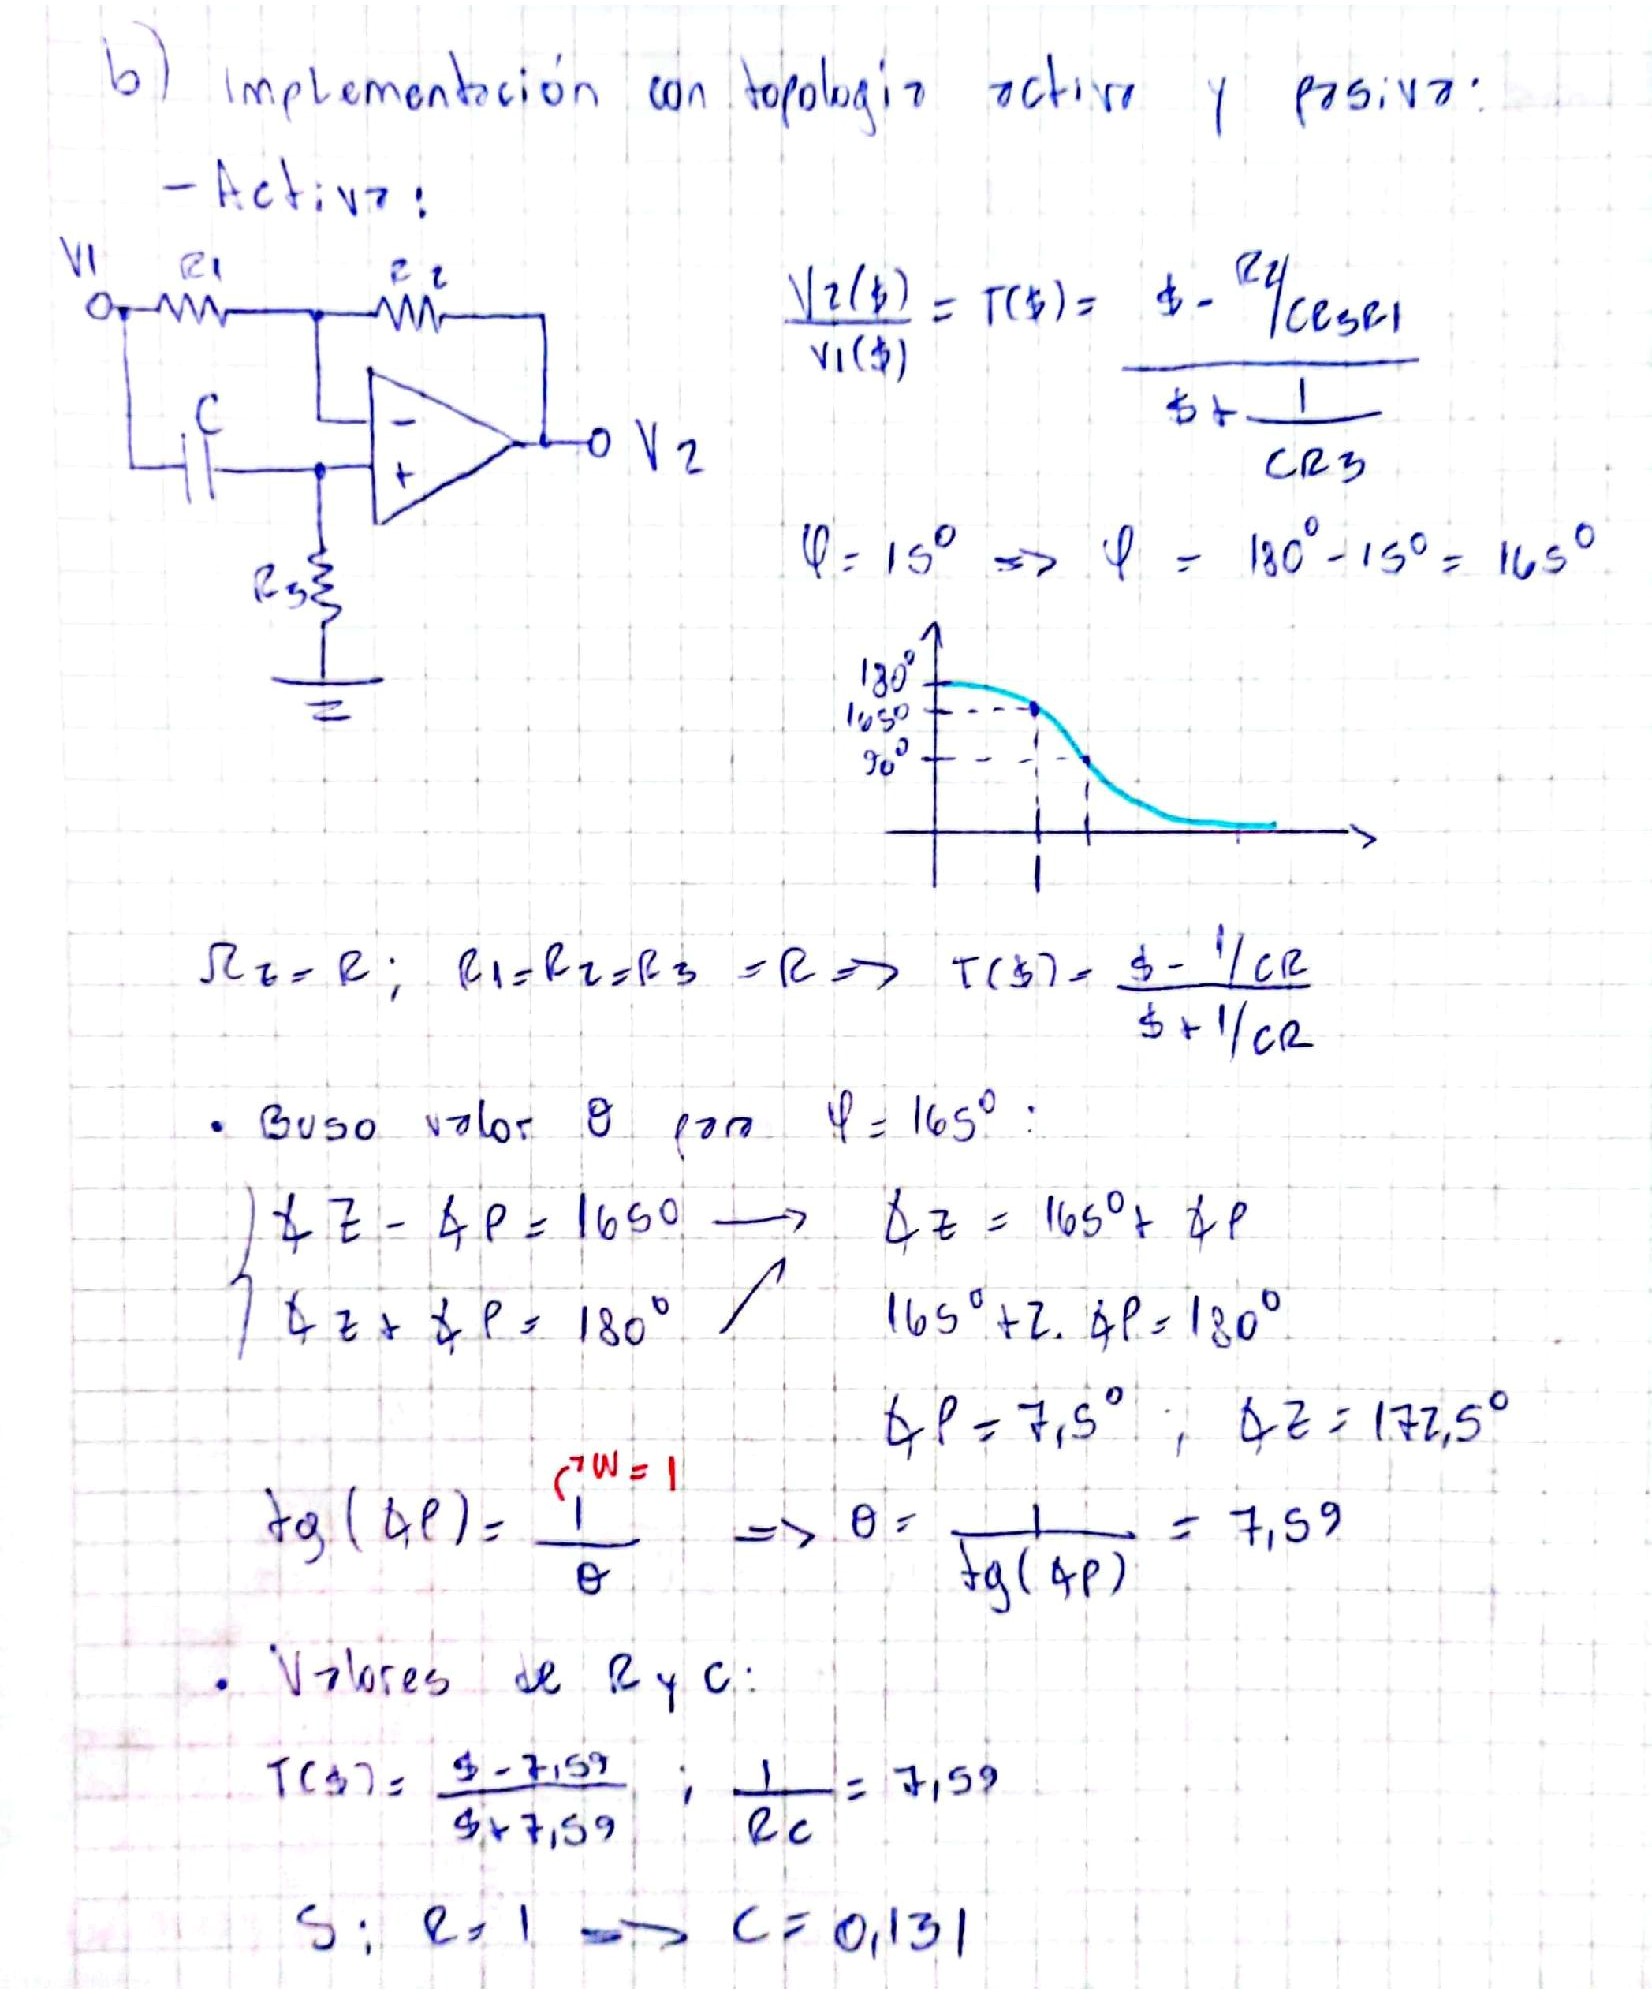 b) Implementación con topología activa y pasiva:
- Activa:
V1 R1 R2
C
- +
V2
R3
V2($)/V1($) = T($) = ($ - R2/CR3R1) / ($ + 1/CR3)
φ = 15° => φ = 180° - 15° = 165°
180°
165°
90°
1
Ωz = R; R1 = R2 = R3 = R => T($) = ($ - 1/CR) / ($ + 1/CR)
• Buso valor θ para φ = 165°:
∡Z - ∡P = 165° → ∡Z = 165° + ∡P
∡Z + ∡P = 180° ↗ 165° + 2.∡P = 180°
∡P = 7,5° ; ∡Z = 172,5°
W = 1
tg(∡P) = 1/θ => θ = 1/tg(∡P) = 7,59
• Valores de R y C:
T($) = ($ - 7,59) / ($ + 7,59) ; 1/RC = 7,59
Si R = 1 => C = 0,131